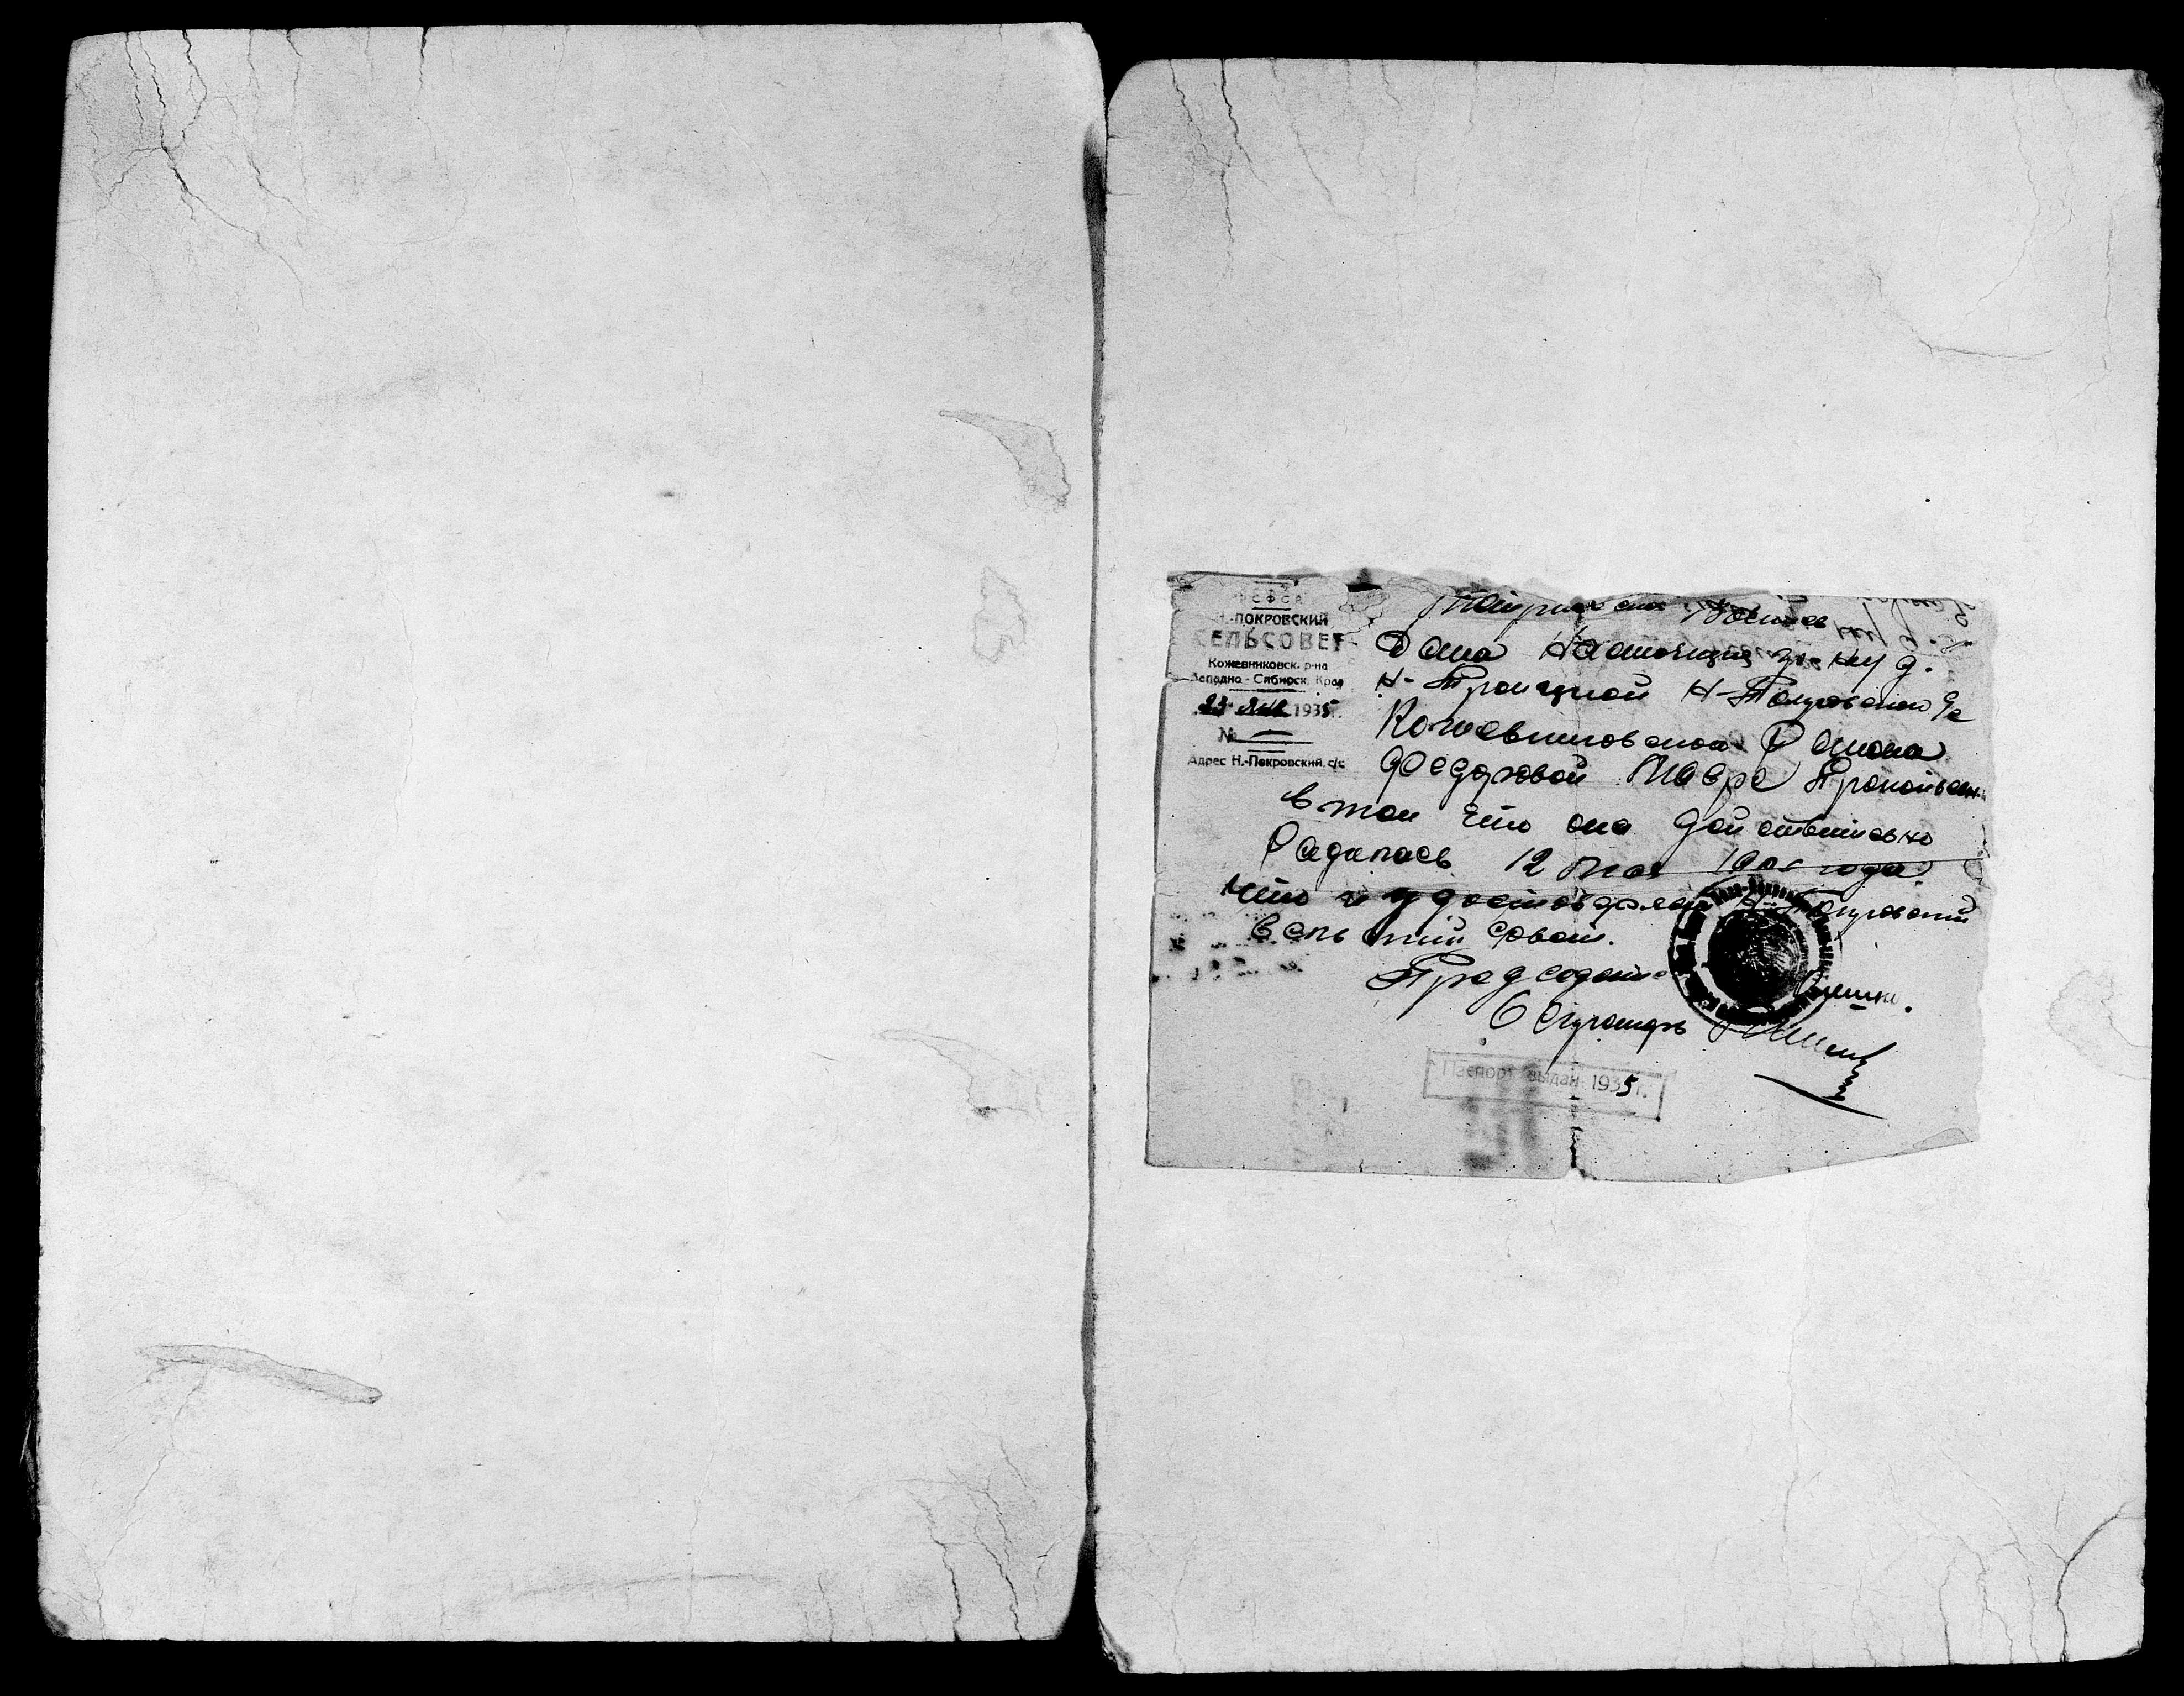 РСФСР
Н.-ПОКРОВСКИЙ
СЕЛЬСОВЕТ
Кожевниковск. р-на
Западно-Сибирск. Края
23 1935г.
№ —
Адрес Н.-Покровский. с/с
Дана Настоящая гр-ну д.
Н-Троицкой Н-Покровского с/с
Кожевниковского Района
Федоровой Мавре Прокопьевн
в том что она действительно
Радилась 12 Мая года
что и удостоверяет Н-Покровский
Сельский совет.
Председате
Секретарь
Паспорт выдан 1935 г.